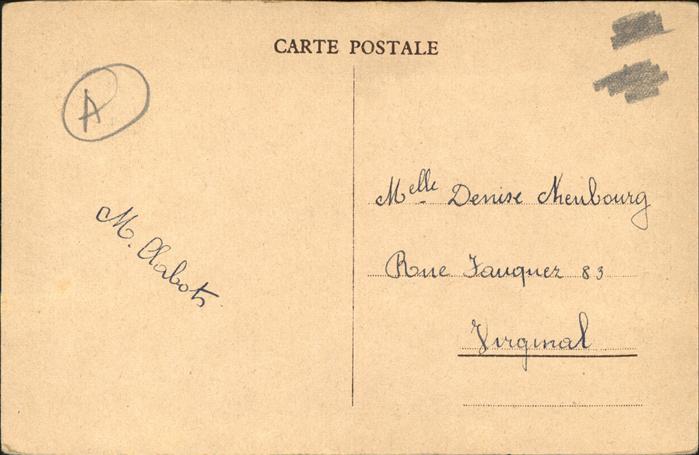 CARTE POSTALE
A
M. Chabots
Melle Denise Nieubourg
Rue Fauquez 83
Virginal